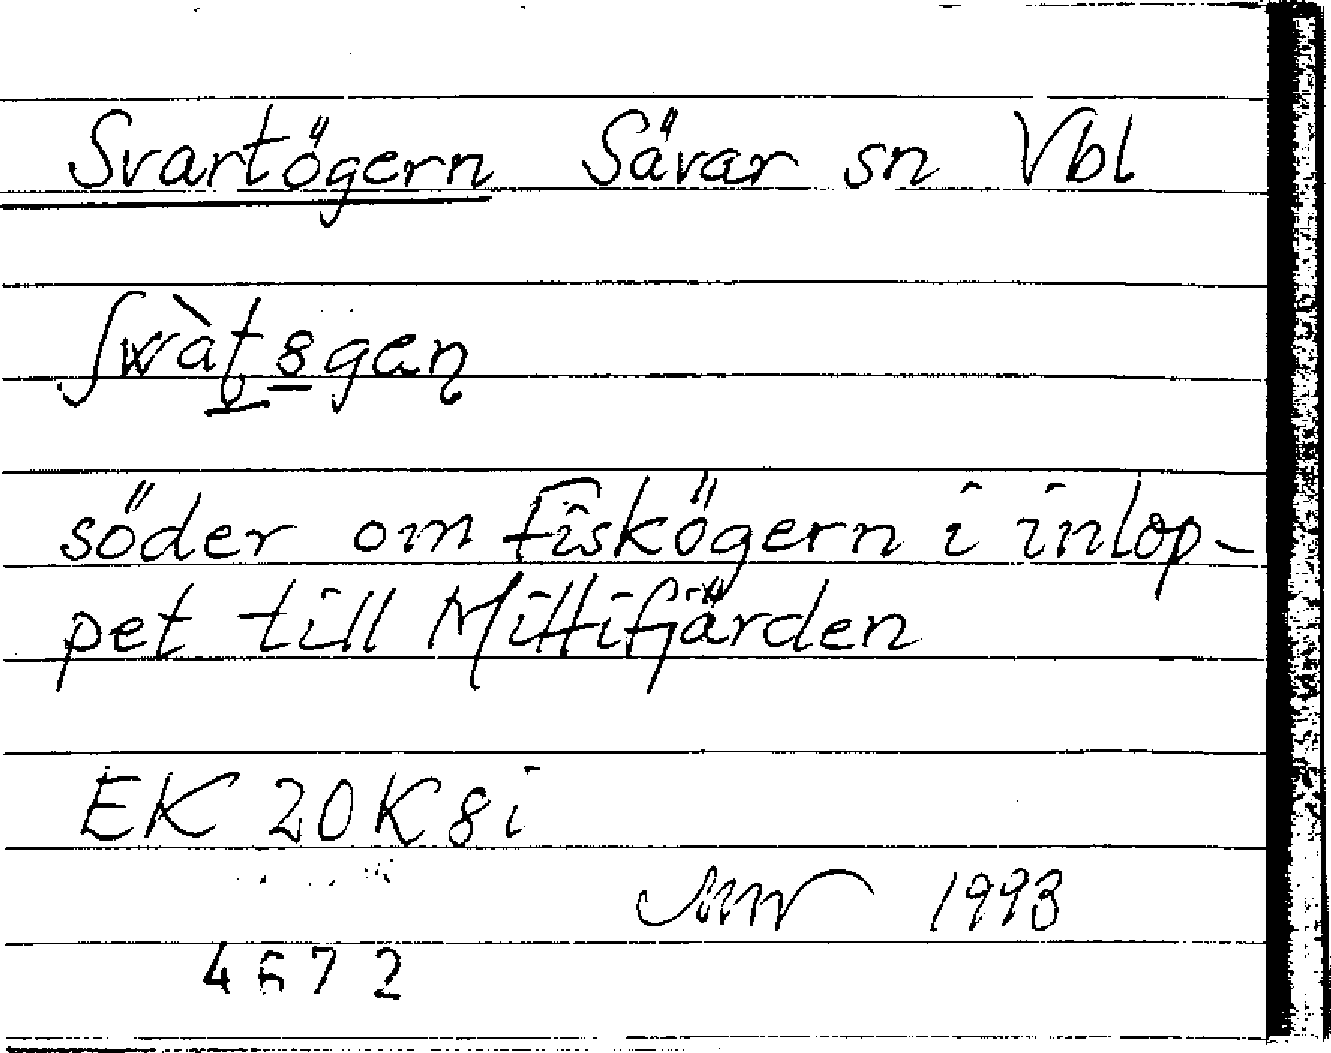 Svartögern Sävar sn Vbl
söder om Fiskögern i inlop-
pet till Mittifjärden
EK 20K 8i
1993
4672